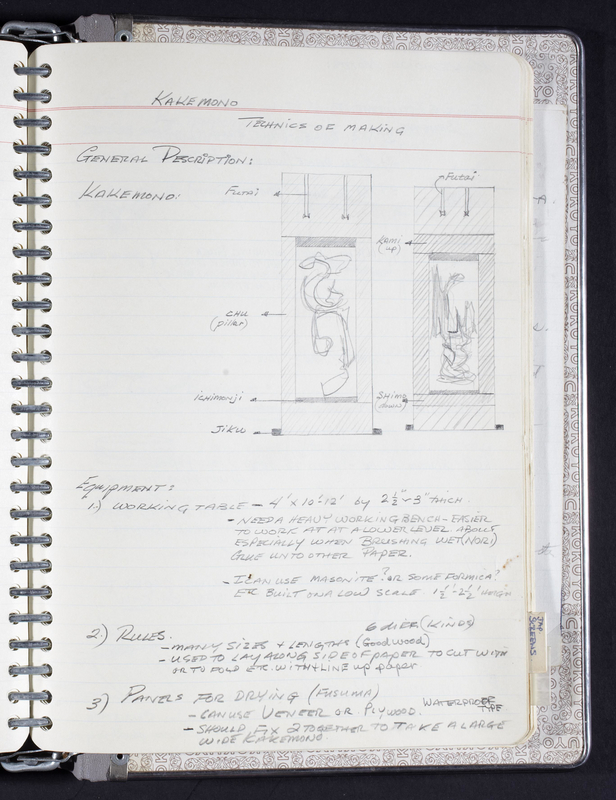 KAKEMONO
TECHNICS OF MAKING
GENERAL DESCRIPTION:
KAKEMONO:
FUTAI
FUTAI
KAMI
(up)
CHU
(piller)
ICHIMONJI
SHIMO
(down)
JIKU
EQUIPMENT:
1.) WORKING TABLE – 4' x 10'-12' by 2½"-3" thick.
- NEED A HEAVY WORKING BENCH – EASIER
TO WORK AT AT A LOWER LEVEL ABOUT
ESPECIALLY WHEN BRUSHING WET (NORI)
GLUE UNTO OTHER PAPER.
- I CAN USE MASONITE? OR SOME FORMICA?
ETC BUILT ON A LOW SCALE 1½'-2½' HEIGH
2.) RULES.
6 (KINDS)
- MANY SIZES + LENGTHS (Good wood)
- USED TO LAY ALONG SIDE OF PAPER TO CUT WITH
OR TO FOLD ETC. WITH + LINE up paper
3) PANELS FOR DRYING (FUSUMA)
- CAN USE VENEER OR PLYWOOD. WATERPROOF
TYPE
- SHOULD FIX 2 TOGETHER TO TAKE A LARGE
WIDE KAKEMONO
JAP
SCREENS